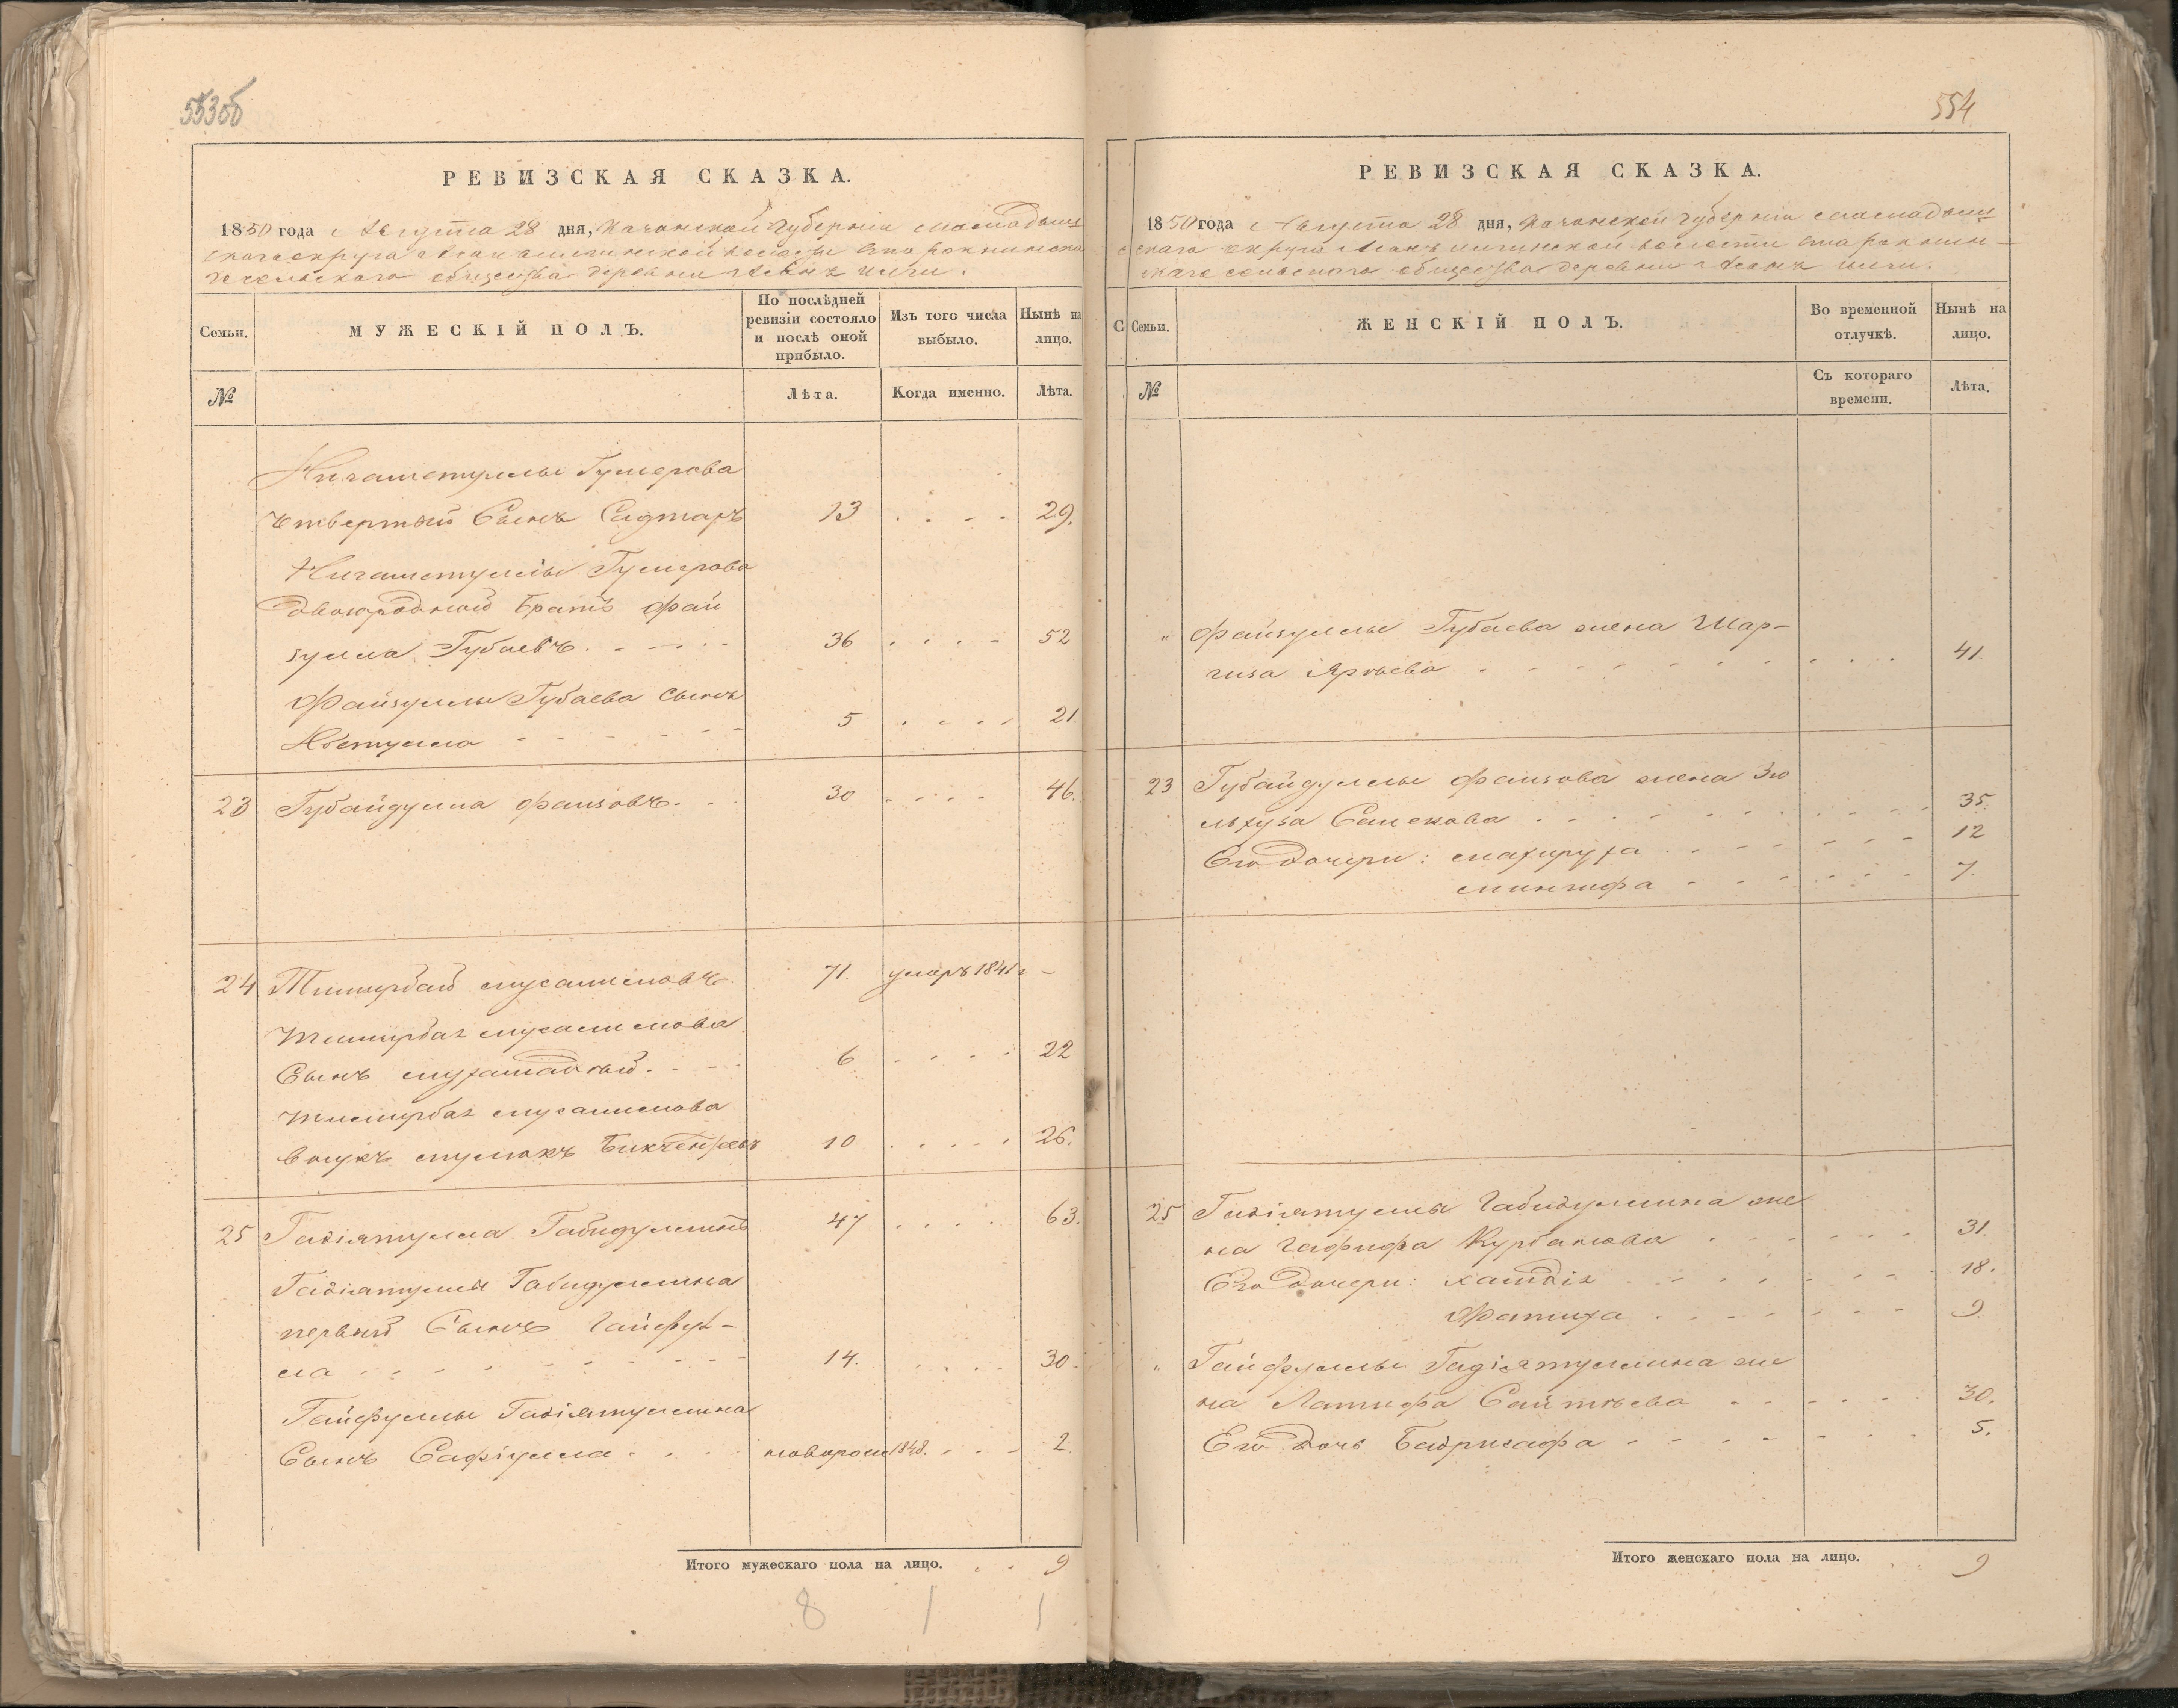 553об
РЕВИЗСКАЯ СКАЗКА.
1850 года Августа 28 дня, Казанской Губерніи Мамадыш
скаго округа волости
сельскаго общества деревни
Семьи.
МУЖЕСКІЙ ПОЛЪ.
По послѣдней ревизіи состояло и послѣ оной прибыло.
Изъ того числа выбыло.
Нынѣ на лицо.
№
Лѣта.
Когда именно.
Лѣта.
Нигаметуллы Гумерова
четвертый Сынъ Сагтаръ 13 29.
Нигаметуллы Гумерова
двоюродный братъ Фай
зулла Губаевъ 36 52
Файзуллы Губаева Сынъ
5 21.
23 Губайдулла Фаизовъ 30 46.
24 Тимирбай Мусалимовъ 71. умеръ 1841 г -
Тимирбая Мусалимова
Сынъ 6 22
Тимирбая Мусалимова
внукъ 10 26.
25 Гадіятулла Габидуллинъ 47 63.
Гадіятуллы Габидуллина
первый Сынъ Гайфул-
ла 14. 30.
Гайфуллы Гадіятуллина
Сынъ Сафіулла новорож 1848. 2.
Итого мужескаго пола на лицо. 9
8 1 1
554
РЕВИЗСКАЯ СКАЗКА.
1850 года Августа 28 дня, Казанской Губерніи Мамадыш
скаго округа волости
скаго сельскаго общества деревни
С
Семьи.
ЖЕНСКІЙ ПОЛЪ.
Во временной отлучкѣ.
Нынѣ на лицо.
№
Съ котораго времени.
Лѣта.
" Файзуллы Губаева жена Шар-
41.
23 Губайдуллы Фаизова жена Зю
льхуза 35.
Его дочери: Махируза 12
7.
25 Гадіятуллы Габидуллина же
на Гафифа Курбанова 31.
Его дочери: Хамдія 18.
Фатиха 9.
" Гайфуллы Гадіятуллина же
на Латифа 30.
Его дочь Бадрисафа 5.
Итого женскаго пола на лицо. 9